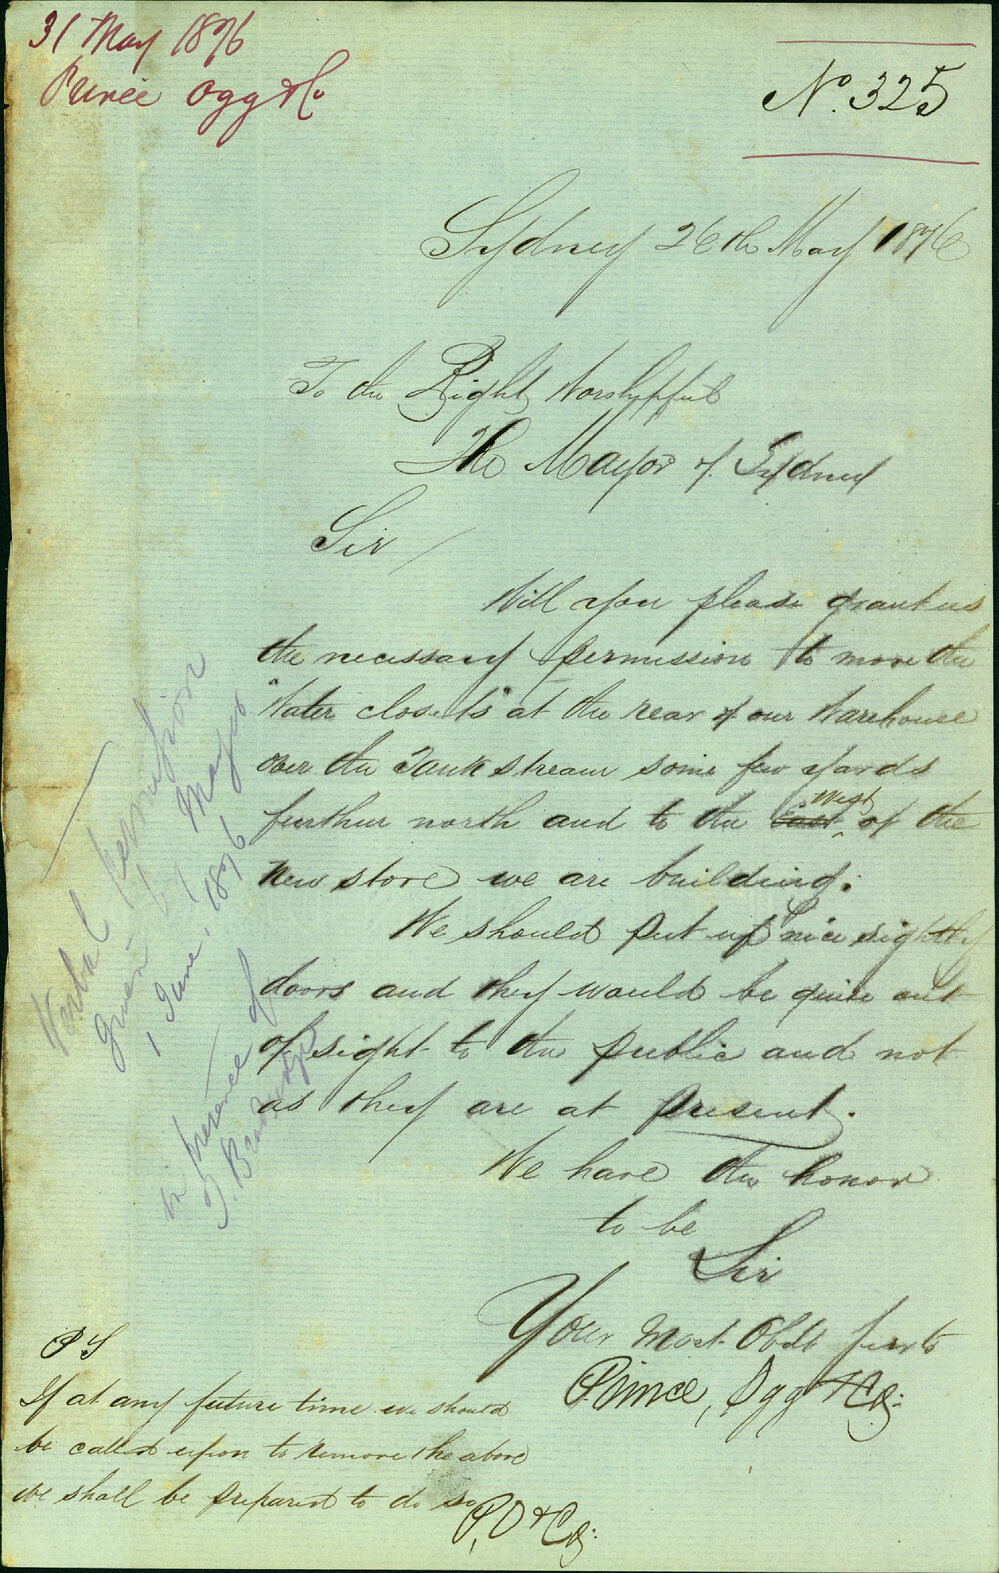 31 May 1876
Prince Ogg & Co
No. 325
Sydney 26th May 1876
To the Right Worshipful
The Mayor of Sydney
Sir /
Will you please grant us
the necessary permission to move the
"Water closets" at the rear of our Warehouse
over the Tank stream some few yards
further north and to the East West of the
new store we are building.
We should put up nice sightly
doors and they would be quite out
of sight to the public and not
as they are at present.
We have the honor
to be
Sir
Your Most Obdt Servts
Prince, Ogg & Co:
PS
If at any future time we should
be called upon to remove the above
we shall be prepared to do so
P, O & Co:
Verbal permission
given by Mayor
1 June, 1876
in presence of